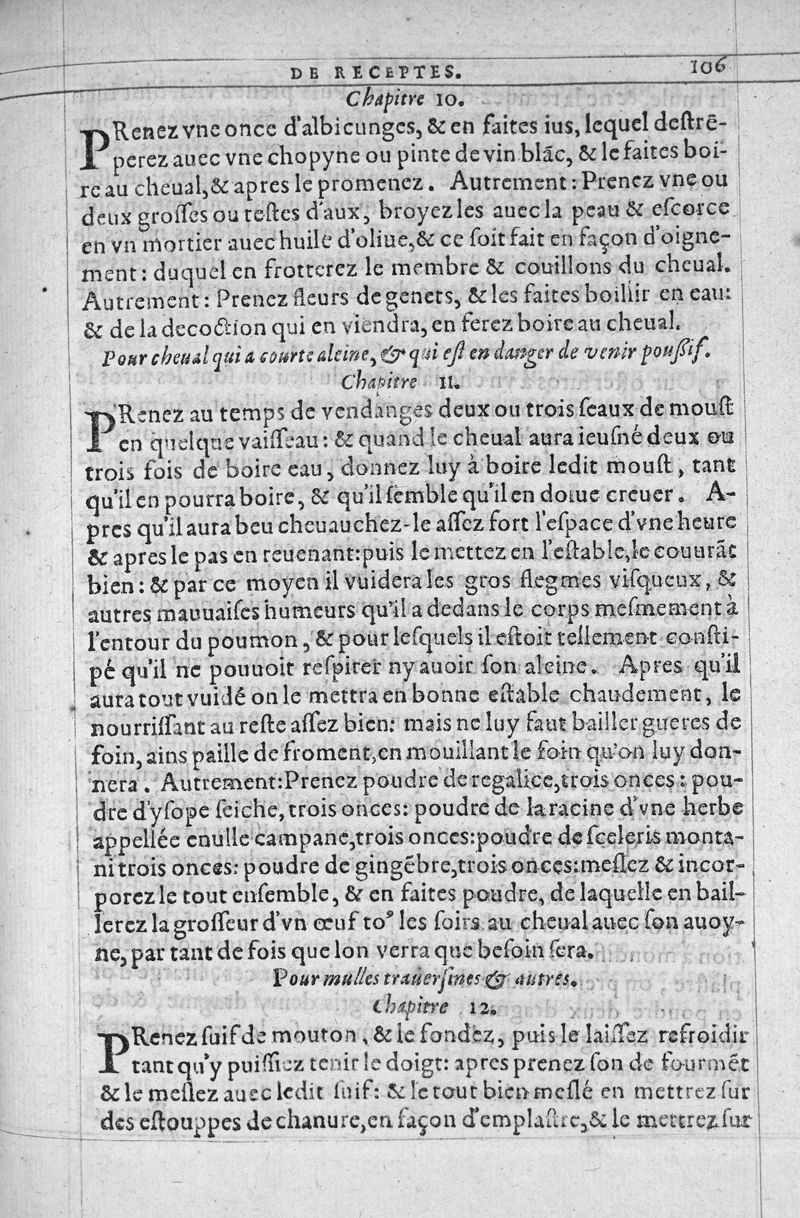 DE RECEPTES. 106
Chapitre 10.
PRenez vne once d'albicunges, & en faites ius, lequel deſtrē-
perez auec vne chopyne ou pinte de vin blāc, & le faites boi-
re au cheual, & apres le promenez. Autrement: Prenez vne ou
deux groſſes ou teſtes d'aux, broyez les auec la peau & eſcorce
en vn mortier auec huile d'oliue, & ce ſoit fait en façon d'oigne-
ment: duquel en frotterez le membre & couillons du cheual.
Autrement: Prenez fleurs de genets, & les faites boillir en eau:
& de la decoction qui en viendra, en ferez boire au cheual.
Pour cheual qui a courte aleine, & qui eſt en danger de venir pouſſif.
Chapitre 11.
PRenez au temps de vendanges deux ou trois ſeaux de mouſt
en quelque vaiſſeau: & quand le cheual aura ieuſné deux ou
trois fois de boire eau, donnez luy à boire ledit mouſt, tant
qu'il en pourra boire, & qu'il ſemble qu'il en doiue creuer. A-
pres qu'il aura beu cheuauchez-le aſſez fort l'eſpace d'vne heure
& apres le pas en reuenant: puis le mettez en l'eſtable, le couurāt
bien: & par ce moyen il vuidera les gros flegmes viſqueux, &
autres mauuaiſes humeurs qu'il a dedans le corps meſmement à
l'entour du poumon, & pour leſquels il eſtoit tellement conſti-
pé qu'il ne pouuoit reſpirer ny auoir ſon aleine. Apres qu'il
aura tout vuidé on le mettra en bonne eſtable chaudement, le
nourriſſant au reſte aſſez bien: mais ne luy faut bailler gueres de
foin, ains paille de froment, en mouillant le foin qu'on luy don-
nera. Autrement: Prenez poudre de regalice, trois onces: pou-
dre d'yſope ſeiche, trois onces: poudre de la racine d'vne herbe
appellée enulle campane, trois onces: poudre de ſceleris monta-
ni trois onces: poudre de gingēbre, trois onces: meſlez & incor-
porez le tout enſemble, & en faites poudre, de laquelle en bail-
lerez la groſſeur d'vn œuf toꝰ les ſoirs au cheual auec ſon auoy-
ne, par tant de fois que lon verra que beſoin ſera.
Pour mulles trauerſines & autres.
Chapitre 12.
PRenez ſuif de mouton, & le fondez, puis le laiſſez refroidir
tant qu'y puiſſiez tenir le doigt: apres prenez ſon de fourmēt
& le meſlez auec ledit ſuif: & le tout bien meſlé en mettrez ſur
des eſtouppes de chanure, en façon d'emplaſtre, & le mettrez ſur